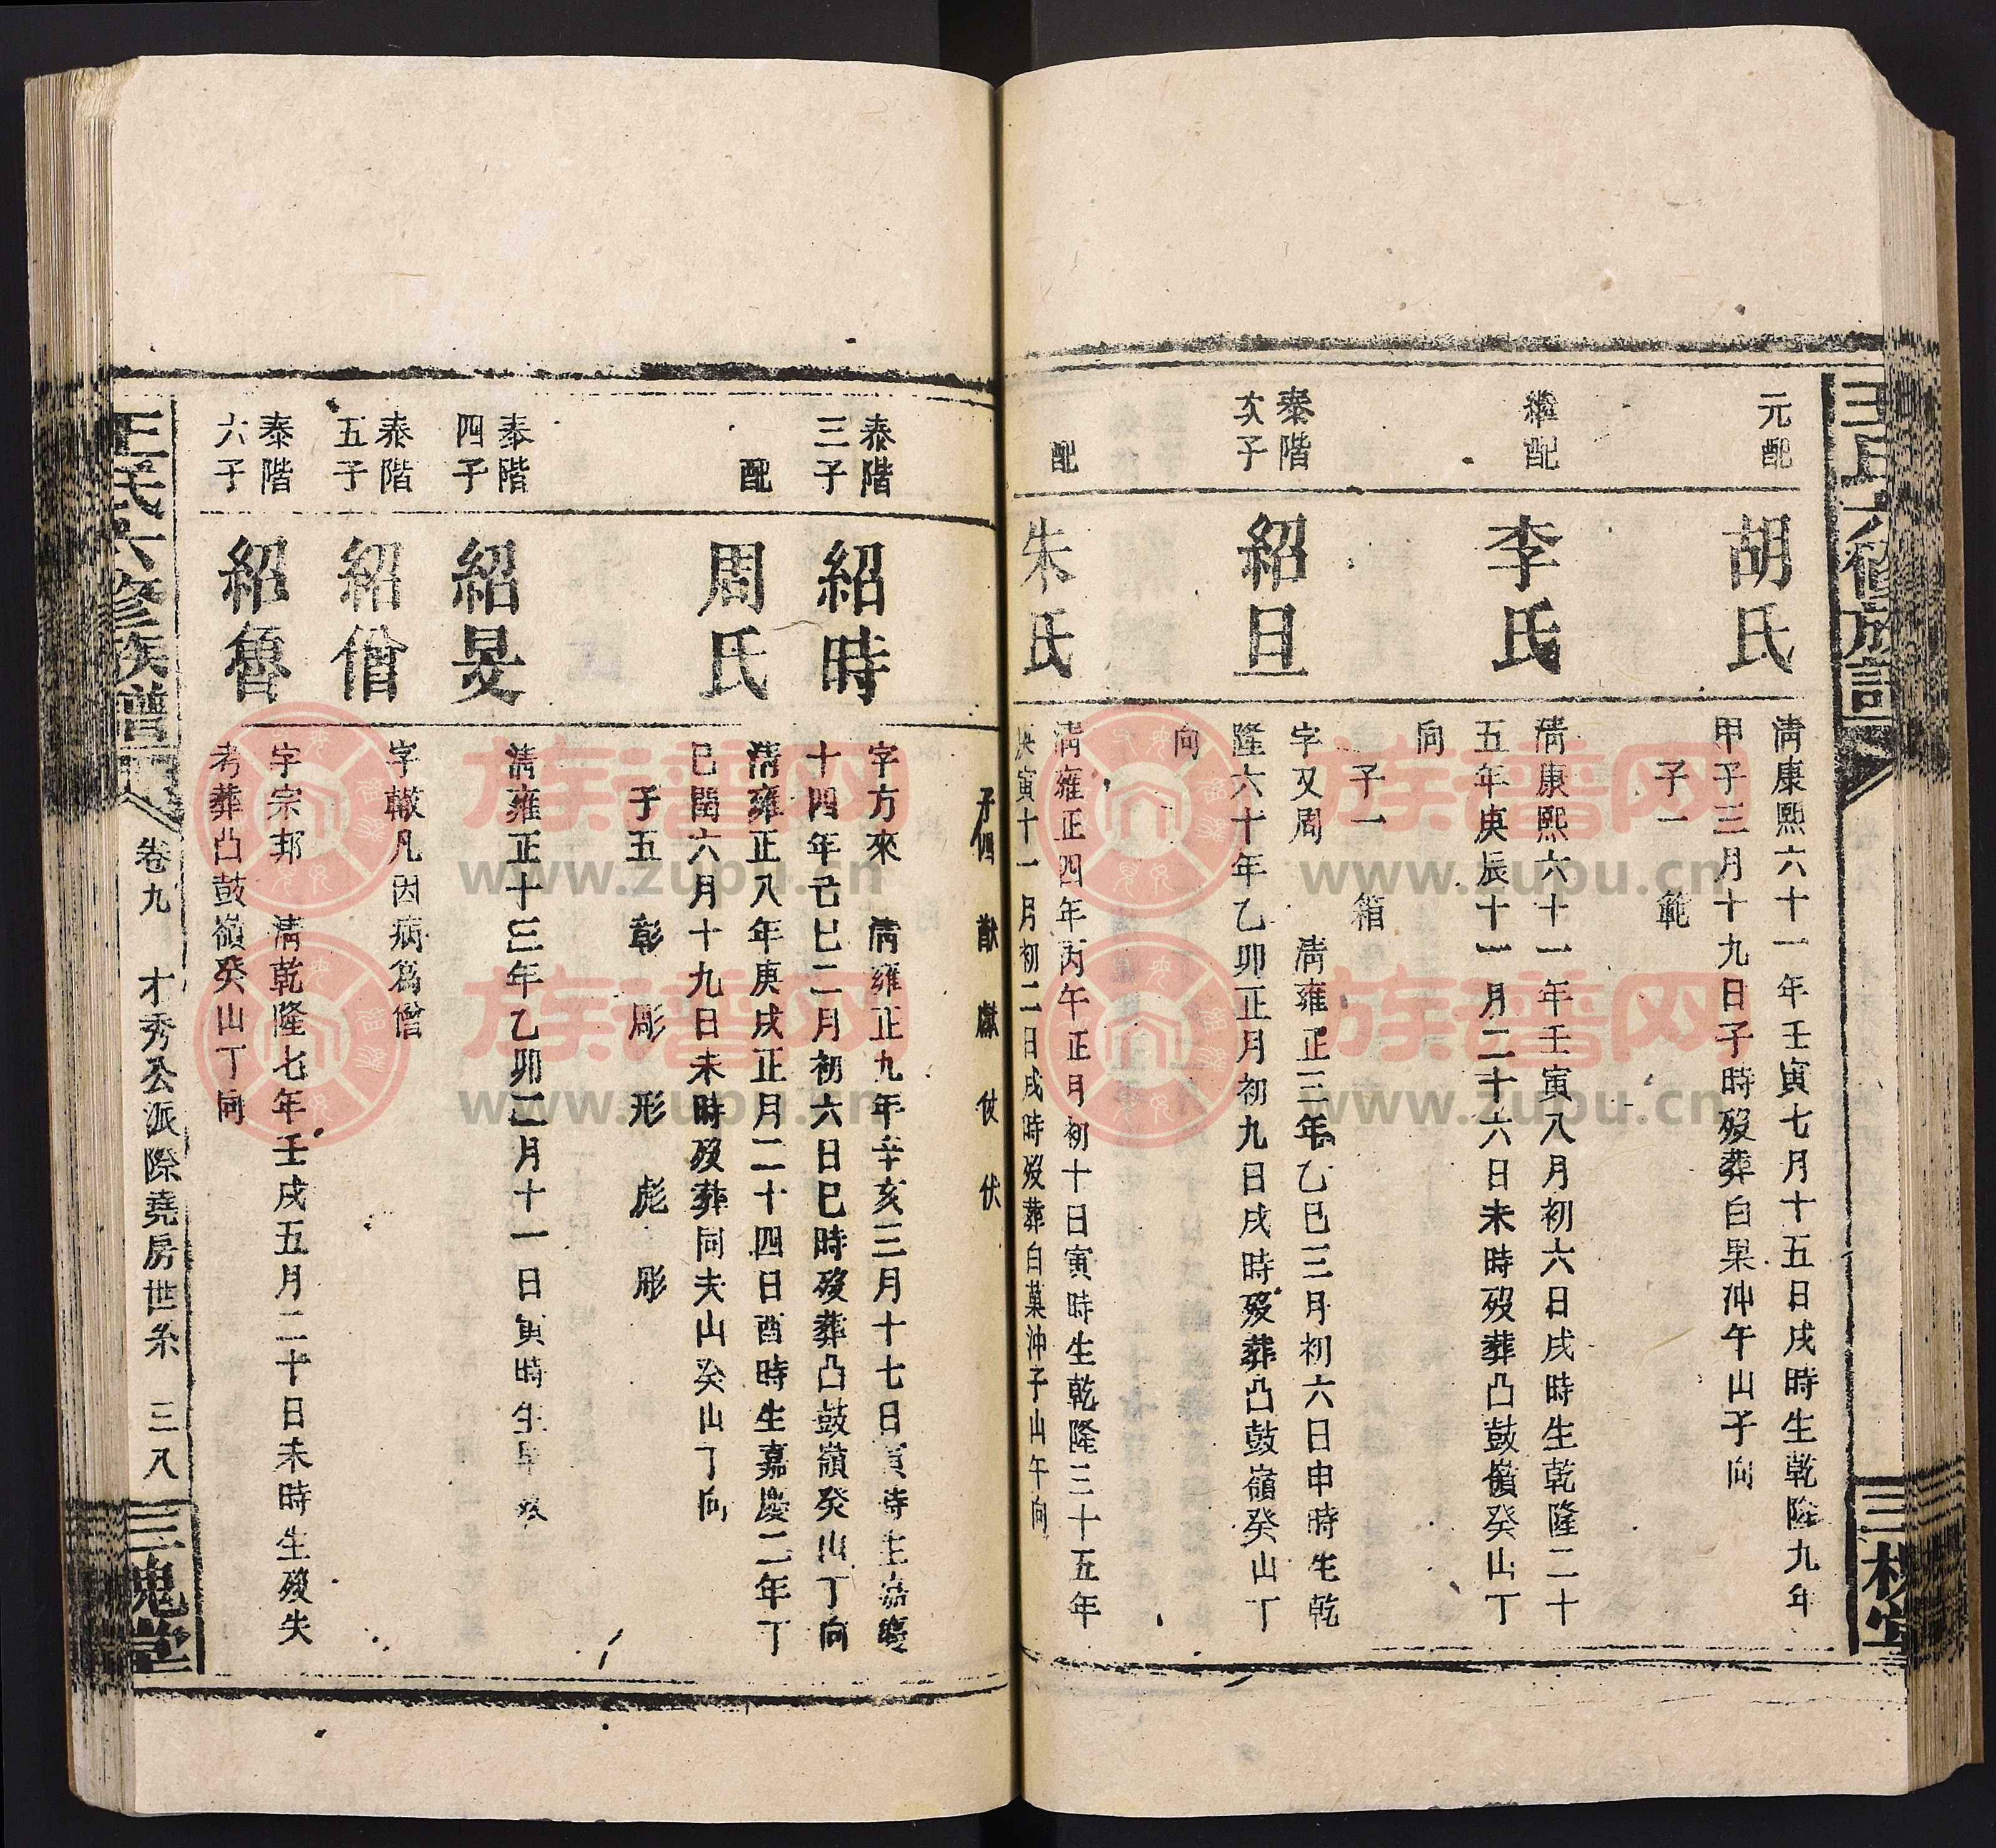 王氏六修族譜
三槐堂
元配
胡氏
清康熙六十一年壬寅七月十五日戌時生乾隆九年
甲子三月十九日子時歿葬白果冲午山子向
子一 範
繼配
李氏
清康熙六十一年壬寅八月初六日戌時生乾隆二十
五年庚辰十一月二十六日未時歿葬凸鼓嶺癸山丁
向
子一 箱
泰階
次子
紹旦
字又周 清雍正三年乙巳三月初六日申時生乾
隆六十年乙卯正月初九日戌時歿葬凸鼓嶺癸山丁
向
配
朱氏
清雍正四年丙午正月初十日寅時生乾隆三十五年
庚寅十一月初二日戌時歿葬白菓沖子山午向
子四 猷 獻 仗 伏
泰階
三子
紹時
字方來 清雍正九年辛亥三月十七日寅時生嘉慶
十四年己巳二月初六日巳時歿葬凸鼓嶺癸山丁向
配
周氏
清雍正八年庚戌正月二十四日酉時生嘉慶二年丁
巳閏六月十九日未時歿葬同夫山癸山丁向
子五 彰 彫 形 彪 彤
泰階
四子
紹旻
清雍正十三年乙卯二月十一日寅時生早歿
泰階
五子
紹僧
字轍凡因病為僧
泰階
六子
紹魯
字宗邦 清乾隆七年壬戌五月二十日未時生歿失
考葬凸鼓嶺癸山丁向
王氏六修族譜
卷九 才秀公派際堯房世系 三八
三槐堂
族譜网
www.zupu.cn
族譜网
www.zupu.cn
族譜网
www.zupu.cn
族譜网
www.zupu.cn